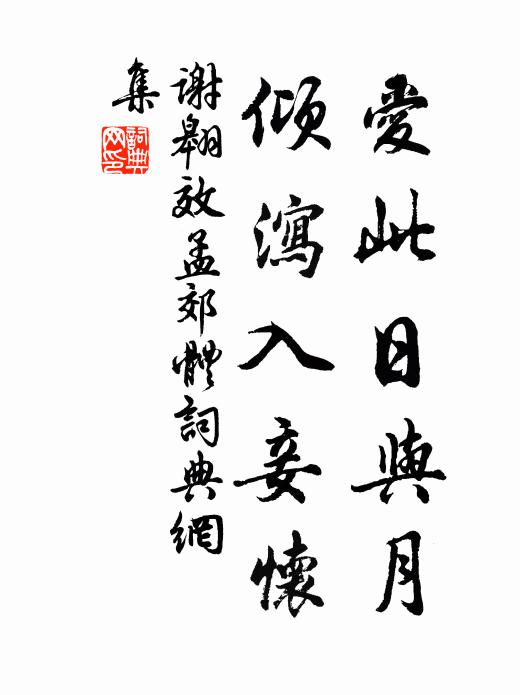 愛此日與月
傾瀉入妾懷
謝翱效孟郊體詞典網
集
詞典
网印